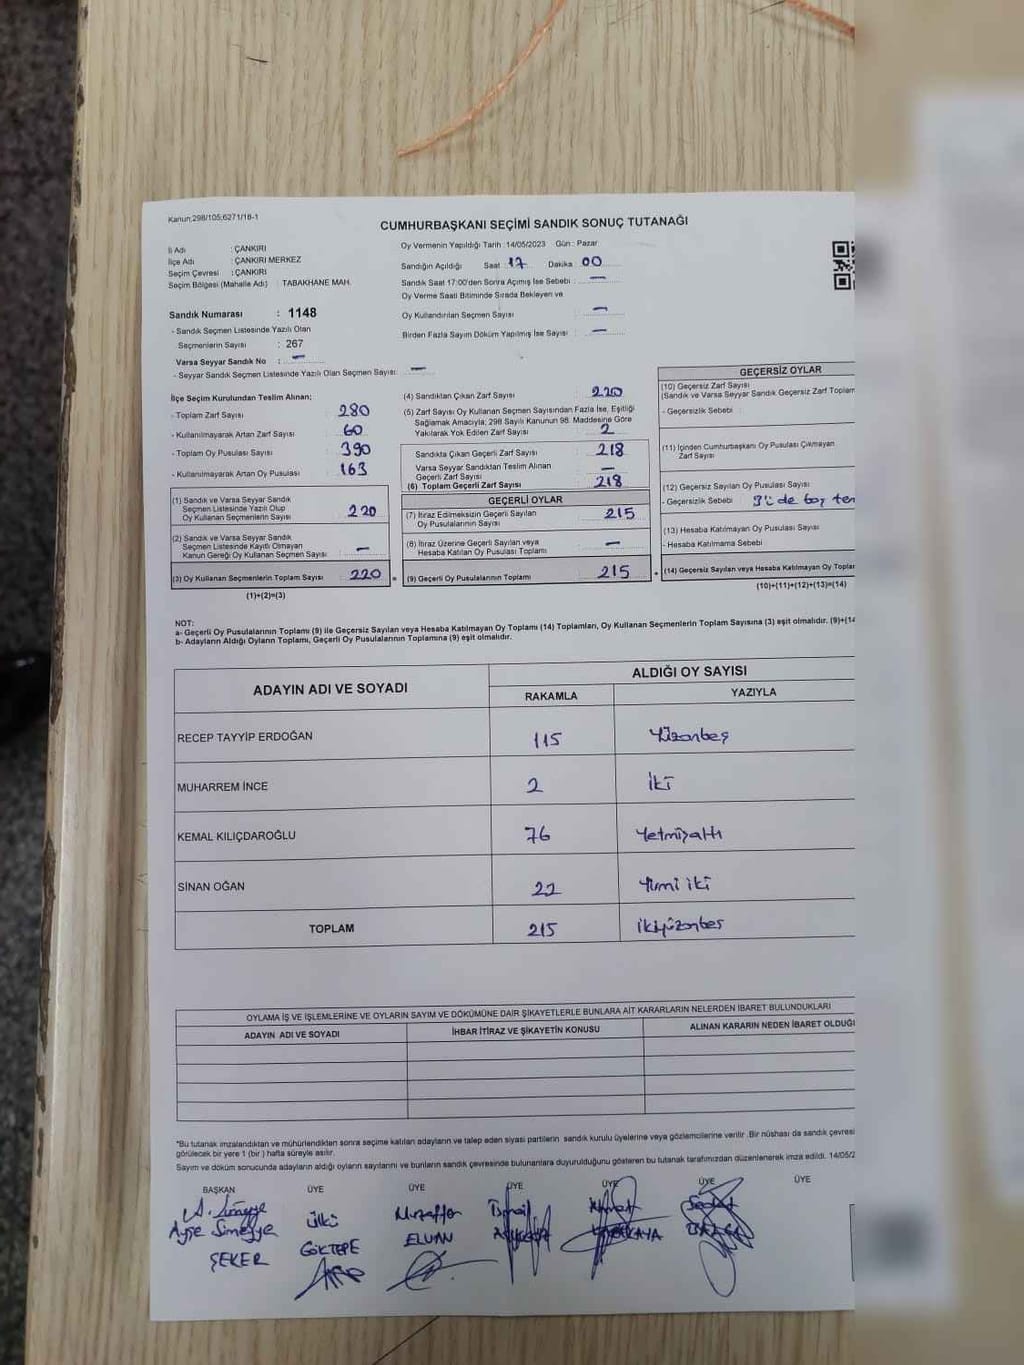 Kanun;298/105;6271/18-1
CUMHURBAŞKANI SEÇİMİ SANDIK SONUÇ TUTANAĞI
İli Adı : ÇANKIRI
İlçe Adı : ÇANKIRI MERKEZ
Seçim Çevresi : ÇANKIRI
Seçim Bölgesi (Mahalle Adı) : TABAKHANE MAH.
Oy Vermenin Yapıldığı Tarih :14/05/2023 Gün : Pazar
Sandığın Açıldığı Saat 17 Dakika 00
Sandık Saat 17:00'den Sonra Açımış İse Sebebi : —
Oy Verme Saati Bitiminde Sırada Bekleyen ve
Oy Kullandırılan Seçmen Sayısı : —
Birden Fazla Sayım Döküm Yapılmış İse Sayısı : —
Sandık Numarası : 1148
- Sandık Seçmen Listesinde Yazılı Olan
Seçmenlerin Sayısı : 267
Varsa Seyyar Sandık No : —
- Seyyar Sandık Seçmen Listesinde Yazılı Olan Seçmen Sayısı: —
İlçe Seçim Kurulundan Teslim Alınan;
- Toplam Zarf Sayısı : 280
- Kullanılmayarak Artan Zarf Sayısı : 60
- Toplam Oy Pusulası Sayısı : 390
- Kullanılmayarak Artan Oy Pusulası : 163
(1) Sandık ve Varsa Seyyar Sandık
Seçmen Listesinde Yazılı Olup
Oy Kullanan Seçmenlerin Sayısı : 220
(2) Sandık ve Varsa Seyyar Sandık
Seçmen Listesinde Kayıtlı Olmayan
Kanun Gereği Oy Kullanan Seçmen Sayısı : —
(3) Oy Kullanan Seçmenlerin Toplam Sayısı : 220
(1)+(2)=(3)
(4) Sandıktan Çıkan Zarf Sayısı : 220
(5) Zarf Sayısı Oy Kullanan Seçmen Sayısından Fazla İse, Eşitliği
Sağlamak Amacıyla; 298 Sayılı Kanunun 98. Maddesine Göre
Yakılarak Yok Edilen Zarf Sayısı : 2
Sandıkta Çıkan Geçerli Zarf Sayısı : 218
Varsa Seyyar Sandıktan Teslim Alınan
Geçerli Zarf Sayısı : —
(6) Toplam Geçerli Zarf Sayısı : 218
GEÇERLİ OYLAR
(7) İtiraz Edilmeksizin Geçerli Sayılan
Oy Pusulalarının Sayısı : 215
(8) İtiraz Üzerine Geçerli Sayılan veya
Hesaba Katılan Oy Pusulası Toplamı : —
(9) Geçerli Oy Pusulalarının Toplamı : 215
GEÇERSİZ OYLAR
(10) Geçersiz Zarf Sayısı
(Sandık ve Varsa Seyyar Sandık Geçersiz Zarf Toplam
- Geçersizlik Sebebi :
(11) İçinden Cumhurbaşkanı Oy Pusulası Çıkmayan
Zarf Sayısı
(12) Geçersiz Sayılan Oy Pusulası Sayısı
- Geçersizlik Sebebi : 3'ü de boş
(13) Hesaba Katılmayan Oy Pusulası Sayısı
- Hesaba Katılmama Sebebi :
(14) Geçersiz Sayılan veya Hesaba Katılmayan Oy Toplam
(10)+(11)+(12)+(13)=(14)
NOT:
a- Geçerli Oy Pusulalarının Toplamı (9) ile Geçersiz Sayılan veya Hesaba Katılmayan Oy Toplamı (14) Toplamları, Oy Kullanan Seçmenlerin Toplam Sayısına (3) eşit olmalıdır. (9)+(14
b- Adayların Aldığı Oyların Toplamı, Geçerli Oy Pusulalarının Toplamına (9) eşit olmalıdır.
ADAYIN ADI VE SOYADI ALDIĞI OY SAYISI
RAKAMLA YAZIYLA
RECEP TAYYİP ERDOĞAN 115 Yüzonbeş
MUHARREM İNCE 2 iki
KEMAL KILIÇDAROĞLU 76 Yetmişaltı
SİNAN OĞAN 22 Yirmi iki
TOPLAM 215 ikiyüzonbeş
OYLAMA İŞ VE İŞLEMLERİNE VE OYLARIN SAYIM VE DÖKÜMÜNE DAİR ŞİKAYETLERLE BUNLARA AİT KARARLARIN NELERDEN İBARET BULUNDUKLARI
ADAYIN ADI VE SOYADI İHBAR İTİRAZ VE ŞİKAYETİN KONUSU ALINAN KARARIN NEDEN İBARET OLDUĞU
*Bu tutanak imzalandıktan ve mühürlendikten sonra seçime katılan adayların ve talep eden siyasi partilerin sandık kurulu üyelerine veya gözlemcilerine verilir .Bir nüshası da sandık çevresi
görülecek bir yere 1 (bir ) hafta süreyle asılır.
Sayım ve döküm sonucunda adayların aldığı oyların sayılarını ve bunların sandık çevresinde bulunanlara duyurulduğunu gösteren bu tutanak tarafımızdan düzenlenerek imza edildi. 14/05/2
BAŞKAN ÜYE ÜYE ÜYE ÜYE ÜYE ÜYE
Ayşe Sümeyye ŞEKER
Ülkü GÖKTEPE
Muzaffer ELVAN
İsmail
Ahmet
Sedat